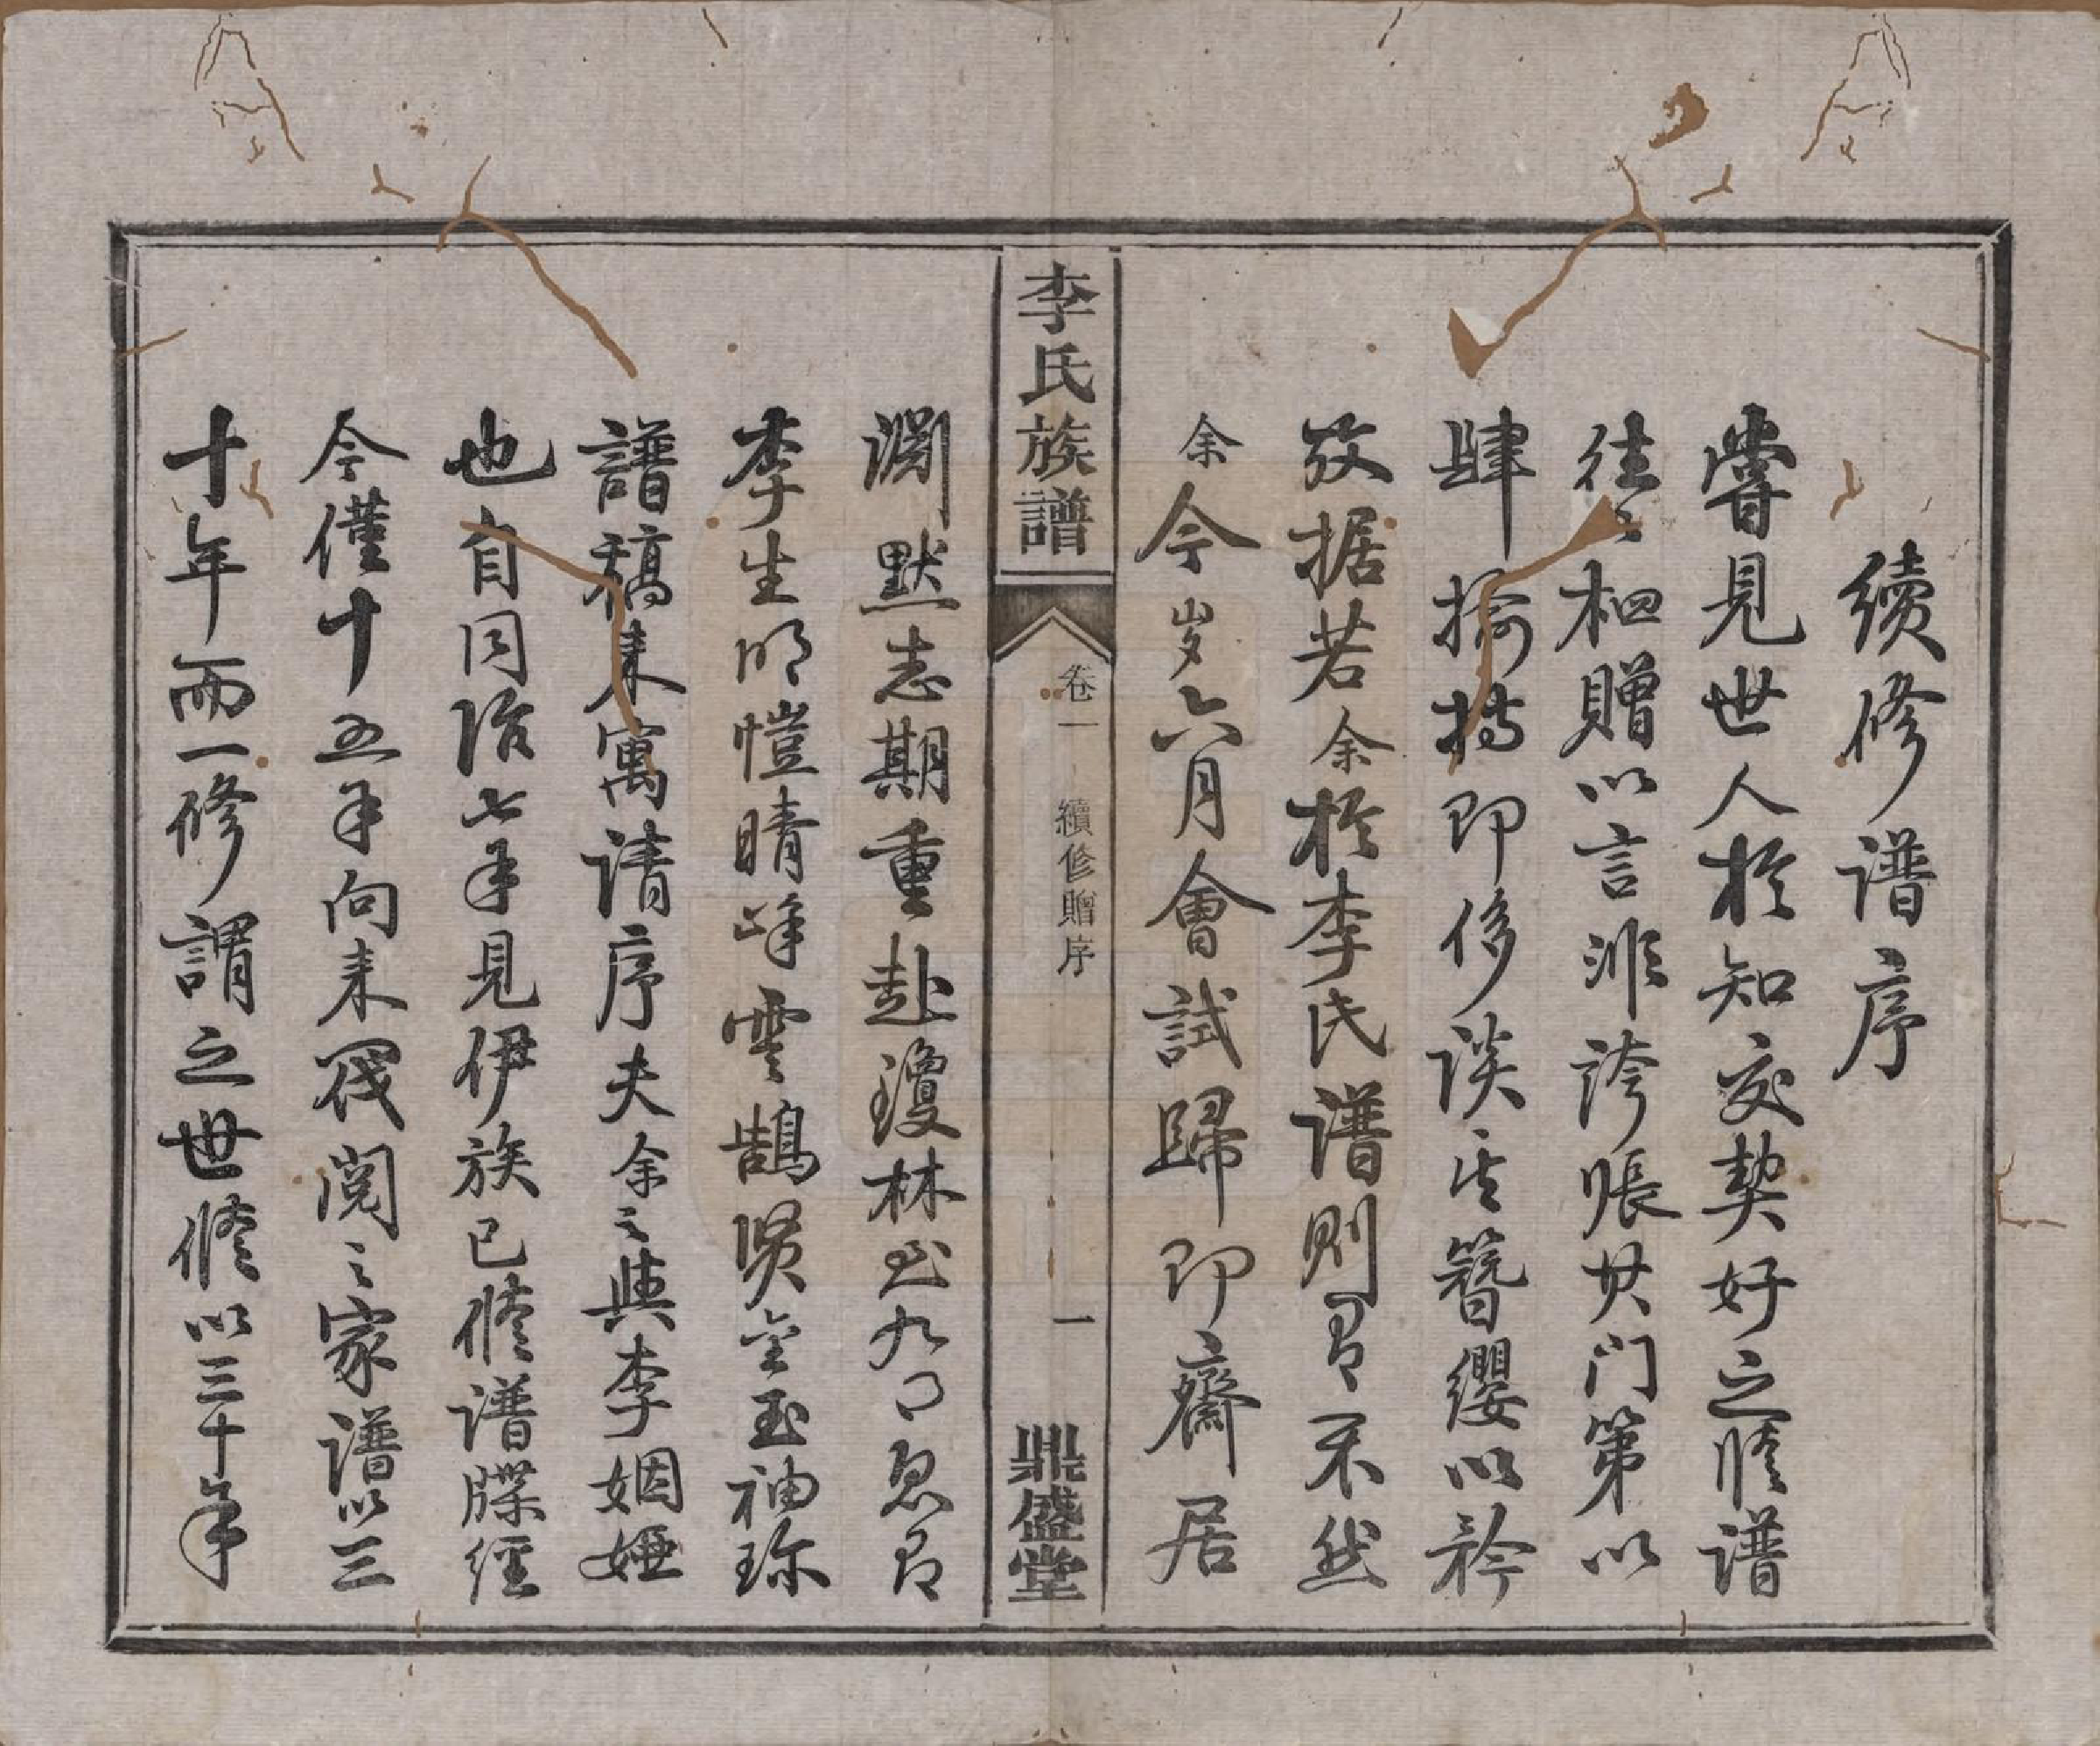 續修譜序
嘗見世人於知交契好之修譜
往〻相贈以言非誇張其门第以
肆揄揚即侈谈其簪纓以矜
考据若余於李氏譜則有不然
余今岁六月會試歸即齋居
李氏族譜
卷一
續修贈序
一
鼎盛堂
淵默志期重赴瓊林山九月忽有
李生明愷晴峰雲鵠賢金玉袖珍
譜稿来寓请序夫余之與李姻婭
也自同治七年見伊族已修谱牒經
今僅十五年向来閱之家譜以三
十年而一修謂之世修以三十年